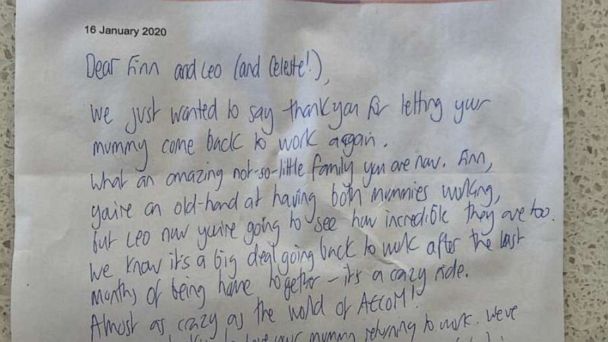 16 January 2020
Dear Finn and Leo (and Celeste!),
We just wanted to say thankyou for letting your
mummy come back to work again.
What an amazing not-so-little family you are now. Finn,
you're an old-hand at having both mummies working,
but Leo now you're going to see how incredible they are too.
We know it's a big deal going back to work after the last
months of being home together - it's a crazy ride.
Almost as crazy as the world of AECOM!
your mummy returning to work. We've